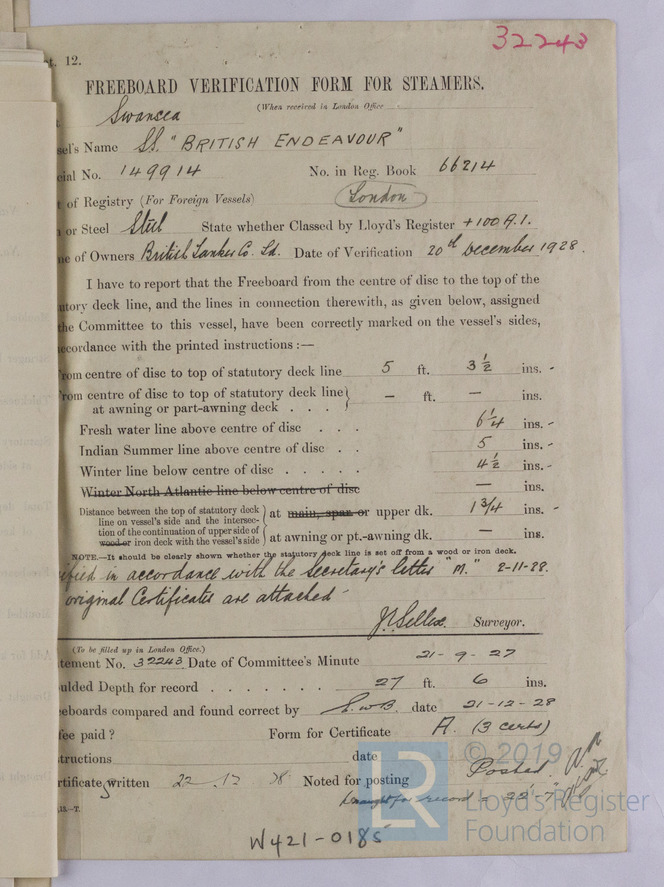 32243
t. 12.
FREEBOARD VERIFICATION FORM FOR STEAMERS.
(When received in London Office
Swansea
sel's Name SS. "BRITISH ENDEAVOUR"
cial No. 149914 No. in Reg. Book 66214
t of Registry (For Foreign Vessels) London
n or Steel Steel State whether Classed by Lloyd's Register +100A.1.
ne of Owners British Tanker Co. Ld. Date of Verification 20th December 1928.
I have to report that the Freeboard from the centre of disc to the top of the
utory deck line, and the lines in connection therewith, as given below, assigned
the Committee to this vessel, have been correctly marked on the vessel's sides,
ccordance with the printed instructions :—
From centre of disc to top of statutory deck line 5 ft. 3 1/2 ins. -
From centre of disc to top of statutory deck line } — ft. — ins.
at awning or part-awning deck . . .
Fresh water line above centre of disc . . . 6 1/4 ins. -
Indian Summer line above centre of disc . . 5 ins. -
Winter line below centre of disc . . . . . 4 1/2 ins. -
Winter North Atlantic line below centre of disc — ins.
Distance between the top of statutory deck
line on vessel's side and the intersec-
tion of the continuation of upper side of
wood or iron deck with the vessel's side
} at main, spar, or upper dk. 1 3/4 ins. -
at awning or pt.-awning dk. — ins.
NOTE.—It should be clearly shown whether the statutory deck line is set off from a wood or iron deck.
ified in accordance with the Secretary's letter "M." 2-11-28.
original Certificates are attached -
Surveyor.
(To be filled up in London Office.)
tement No. 32243 Date of Committee's Minute 21-9-27
oulded Depth for record . . . . . . . 27 ft. 6 ins.
eeboards compared and found correct by date 21-12-28
fee paid ? Form for Certificate A. (3 certs)
structions date
Posted
rtificate written 22.12 28 Noted for posting
Draught for record = 22'-7"
13.—T.
W421-0185
© 2019
LR
Lloyd's Register
Foundation